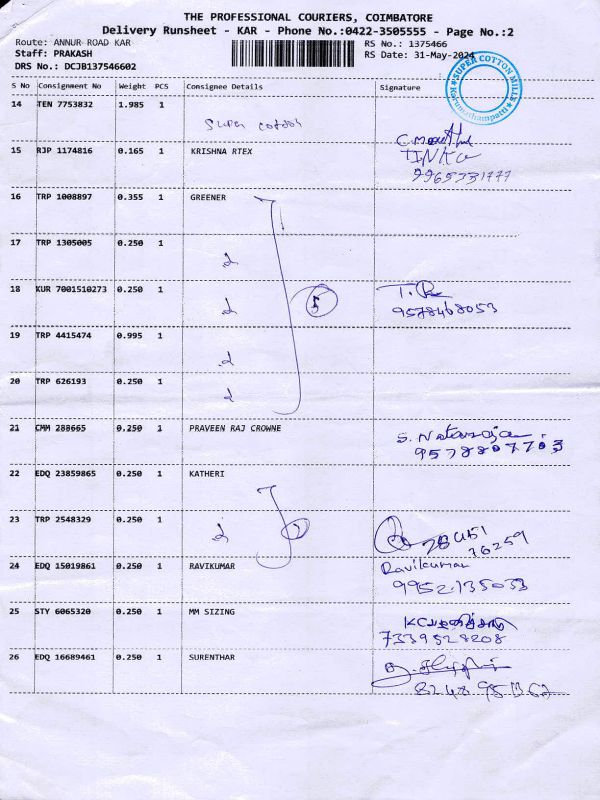 THE PROFESSIONAL COURIERS, COIMBATORE
Delivery Runsheet - KAR - Phone No.:0422-3505555 - Page No.:2
Route: ANNUR ROAD KAR RS No.: 1375466
Staff: PRAKASH RS Date: 31-May-2024
DRS No.: DCJB137546602
SUPER COTTON MILLS
S No Consignment No Weight PCS Consignee Details Signature
14 TEN 7753832 1.985 1 Super cotton
15 RJP 1174816 0.165 1 KRISHNA RTEX
16 TRP 1008897 0.355 1 GREENER
17 TRP 1305005 0.250 1
18 KUR 7001510273 0.250 1 5
9578468053
19 TRP 4415474 0.995 1
20 TRP 626193 0.250 1
21 CMM 288665 0.250 1 PRAVEEN RAJ CROWNE
22 EDQ 23859865 0.250 1 KATHERI
23 TRP 2548329 0.250 1
24 EDQ 15019861 0.250 1 RAVIKUMAR Ravikumar
9952135033
25 STY 6065320 0.250 1 MM SIZING
7339528208
26 EDQ 16689461 0.250 1 SURENTHAR